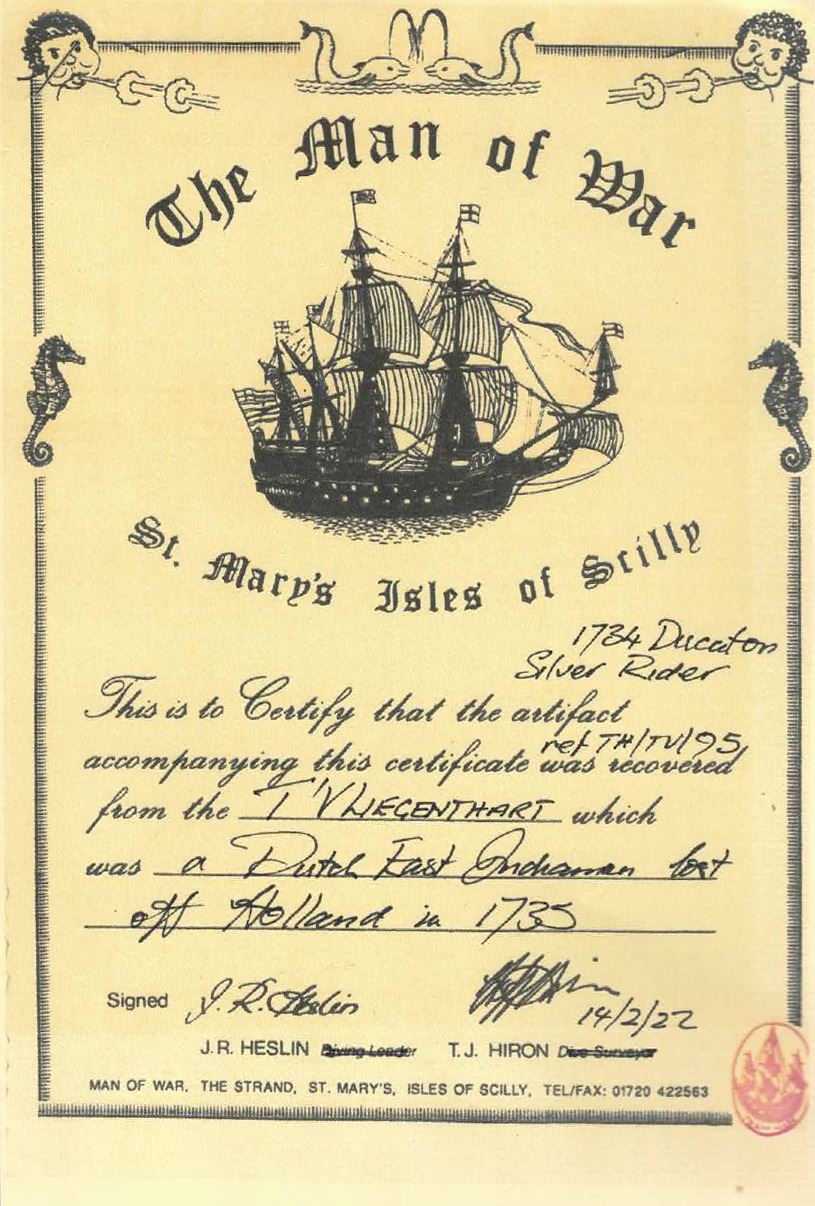 The Man of War
St. Mary's Isles of Scilly
1734 Ducaton
Silver Rider
This is to Certify that the artifact
ref TH/TV/95
accompanying this certificate was recovered
from the T'VLIEGENTHART which
was a Dutch East Indiaman lost
off Holland in 1735
Signed J.R. Heslin
14/2/22
J.R. HESLIN Diving Leader T.J. HIRON Dive Surveyor
MAN OF WAR, THE STRAND, ST. MARY'S, ISLES OF SCILLY, TEL/FAX: 01720 422563